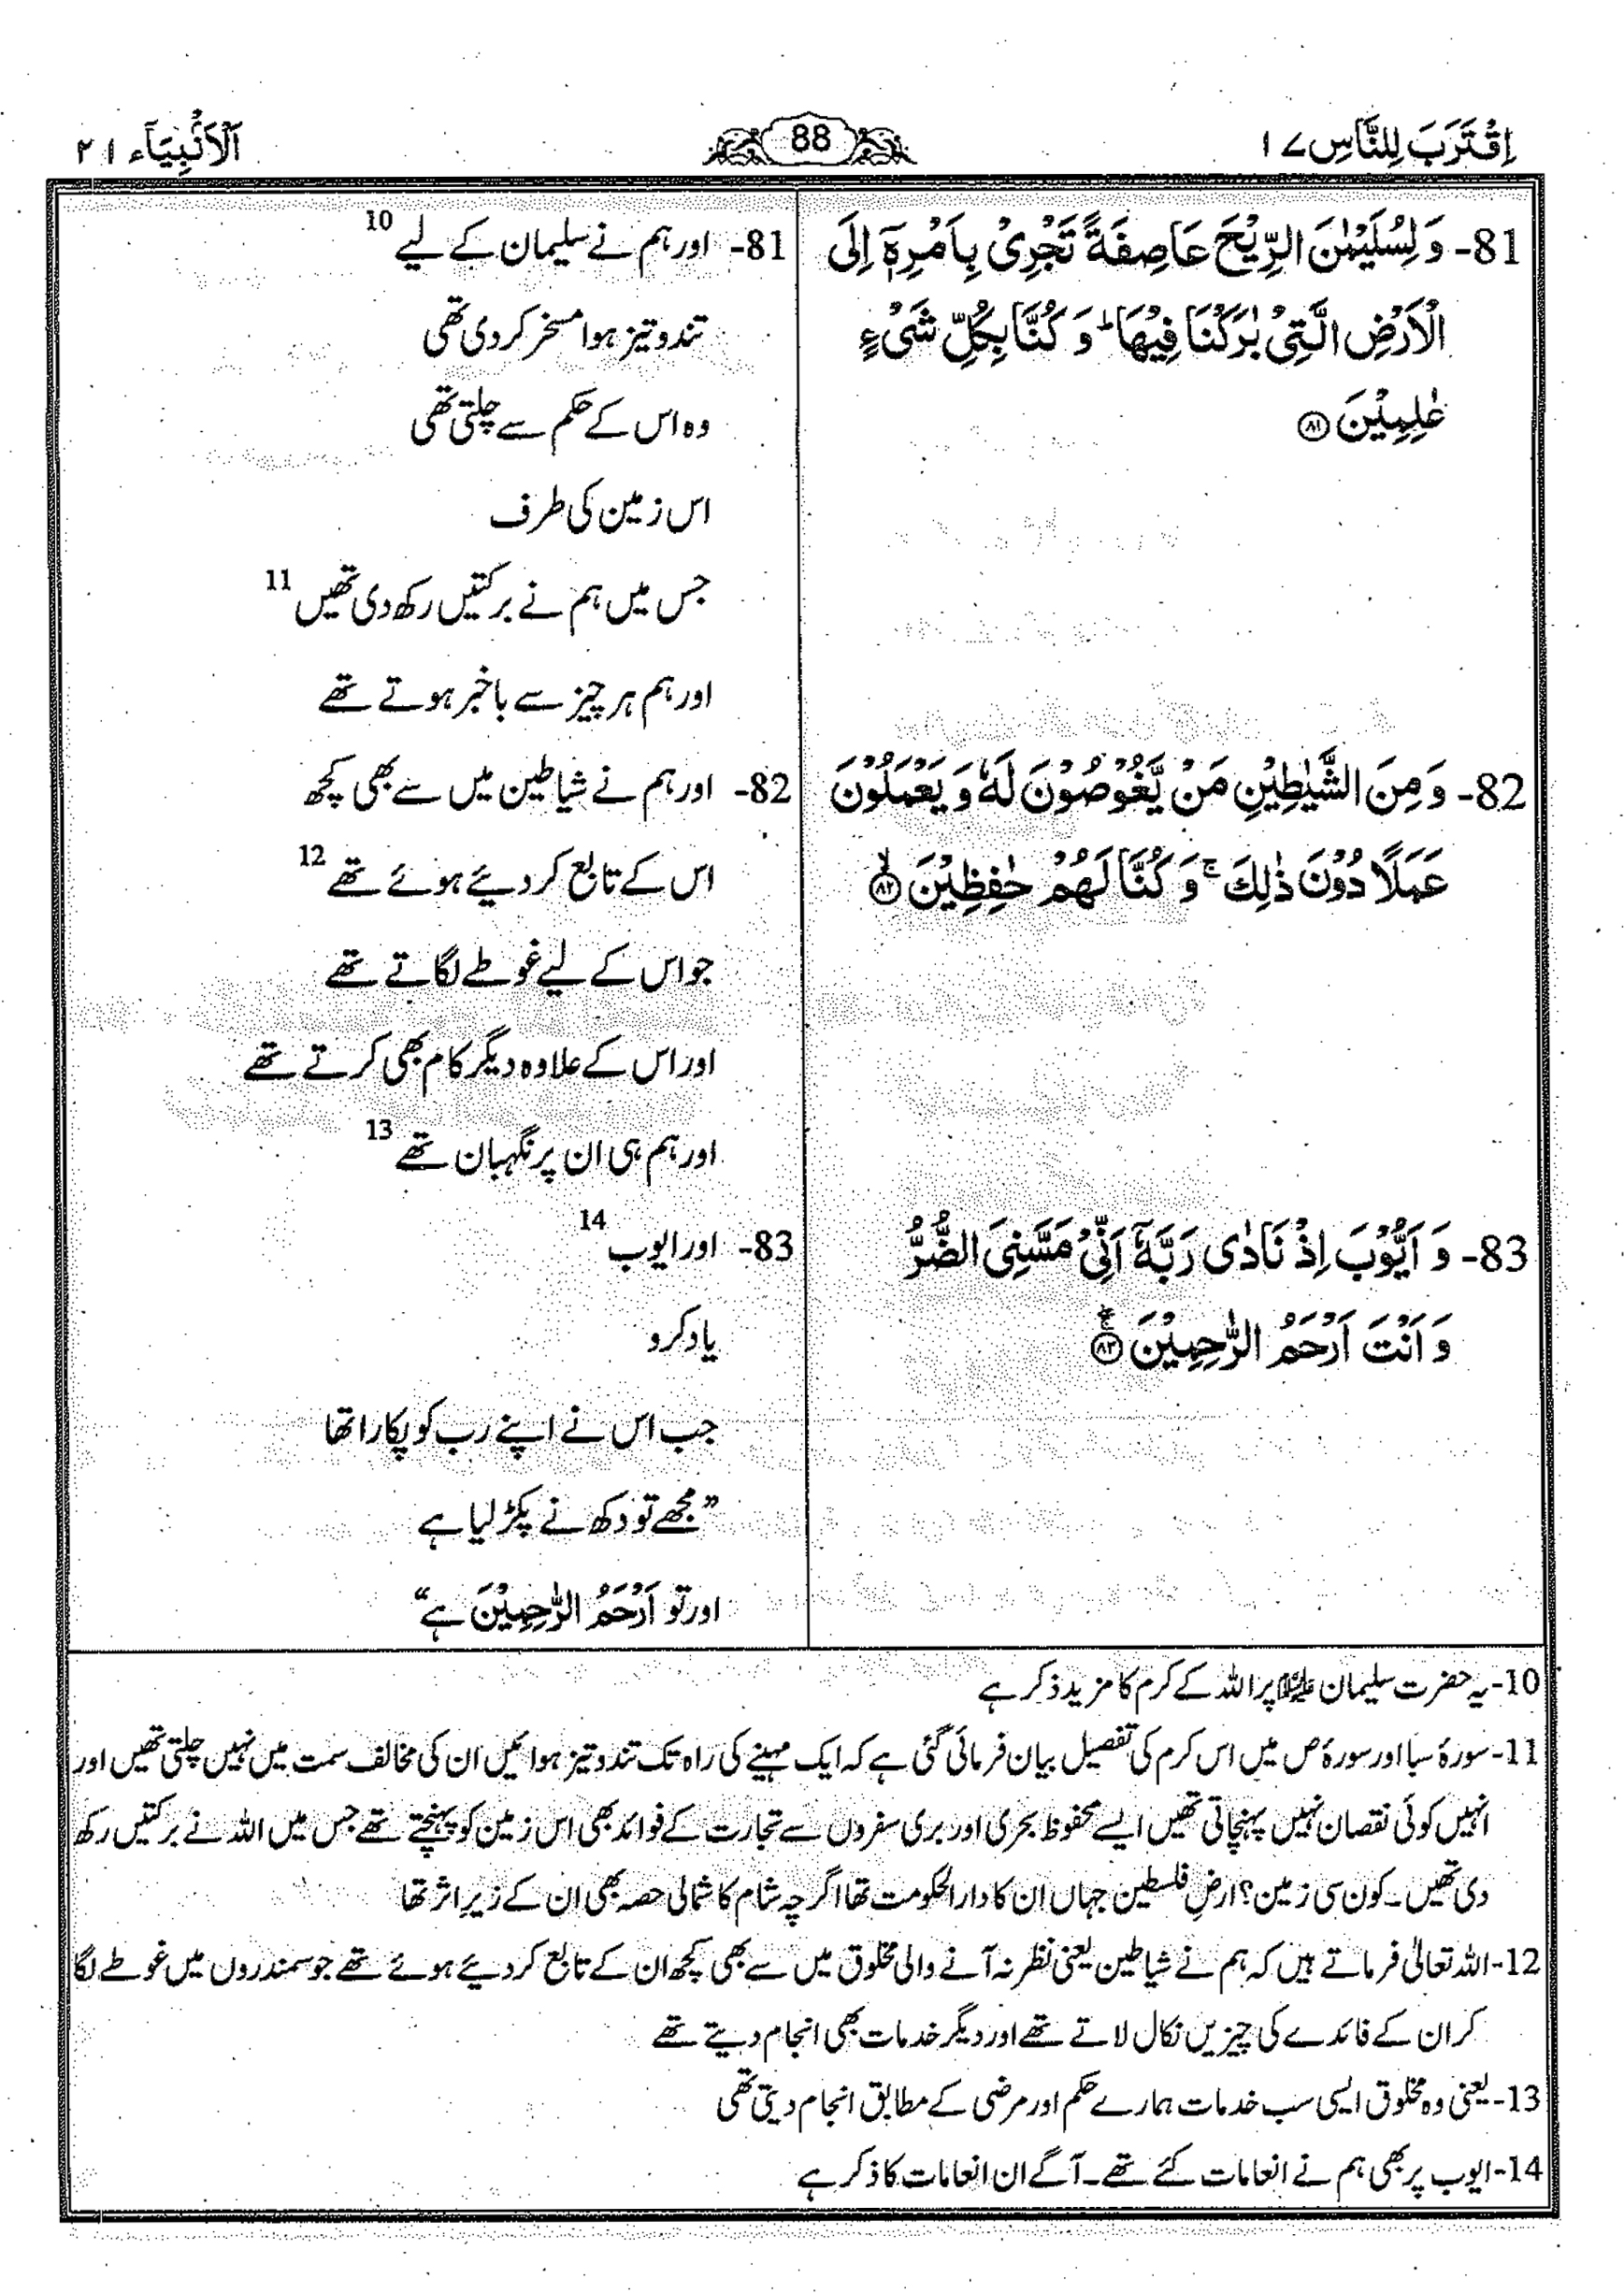 اِقْتَرَبَ لِلنَّاسِ ١٧
88
اَلْاَنْۢبِيَآء ٢١
81- وَ لِسُلَيْمٰنَ الرِّيْحَ عَاصِفَةً تَجْرِيْ بِاَمْرِهٖۤ اِلَى
الْاَرْضِ الَّتِيْ بٰرَكْنَا فِيْهَا ؕ وَ كُنَّا بِكُلِّ شَيْءٍ
عٰلِمِيْنَ ۝۸۱
82- وَ مِنَ الشَّيٰطِيْنِ مَنْ يَّغُوْصُوْنَ لَهٗ وَ يَعْمَلُوْنَ
عَمَلًا دُوْنَ ذٰلِكَ ۚ وَ كُنَّا لَهُمْ حٰفِظِيْنَ ۝۸۲ۙ
83- وَ اَيُّوْبَ اِذْ نَادٰى رَبَّهٗۤ اَنِّيْ مَسَّنِيَ الضُّرُّ
وَ اَنْتَ اَرْحَمُ الرّٰحِمِيْنَ ۝۸۳ۚۖ
81- اور ہم نے سلیمان کے لیے 10
تند و تیز ہوا مسخر کر دی تھی
وہ اس کے حکم سے چلتی تھی
اس زمین کی طرف
جس میں ہم نے برکتیں رکھ دی تھیں 11
اور ہم ہر چیز سے باخبر ہوتے تھے
82- اور ہم نے شیاطین میں سے بھی کچھ
اس کے تابع کر دیئے ہوئے تھے 12
جو اس کے لیے غوطے لگاتے تھے
اور اس کے علاوہ دیگر کام بھی کرتے تھے
اور ہم ہی ان پر نگہبان تھے 13
83- اور ایوب 14
یاد کرو
جب اس نے اپنے رب کو پکارا تھا
”مجھے تو دکھ نے پکڑ لیا ہے
اور تو اَرْحَمُ الرّٰحِمِيْنَ ہے“
10- یہ حضرت سلیمان علیہ السلام پر اللہ کے کرم کا مزید ذکر ہے
11- سورۂ سبا اور سورۂ ص میں اس کرم کی تفصیل بیان فرمائی گئی ہے کہ ایک مہینے کی راہ تک تند و تیز ہوائیں ان کی مخالف سمت میں نہیں چلتی تھیں اور
انہیں کوئی نقصان نہیں پہنچاتی تھیں ایسے محفوظ بحری اور بری سفروں سے تجارت کے فوائد بھی اس زمین کو پہنچتے تھے جس میں اللہ نے برکتیں رکھ
دی تھیں۔ کون سی زمین؟ ارضِ فلسطین جہاں ان کا دارالحکومت تھا اگرچہ شام کا شمالی حصہ بھی ان کے زیرِ اثر تھا
12- اللہ تعالیٰ فرماتے ہیں کہ ہم نے شیاطین یعنی نظر نہ آنے والی مخلوق میں سے بھی کچھ ان کے تابع کر دیئے ہوئے تھے جو سمندروں میں غوطے لگا
کر ان کے فائدے کی چیزیں نکال لاتے تھے اور دیگر خدمات بھی انجام دیتے تھے
13- یعنی وہ مخلوق ایسی سب خدمات ہمارے حکم اور مرضی کے مطابق انجام دیتی تھی
14- ایوب پر بھی ہم نے انعامات کئے تھے۔ آگے ان انعامات کا ذکر ہے